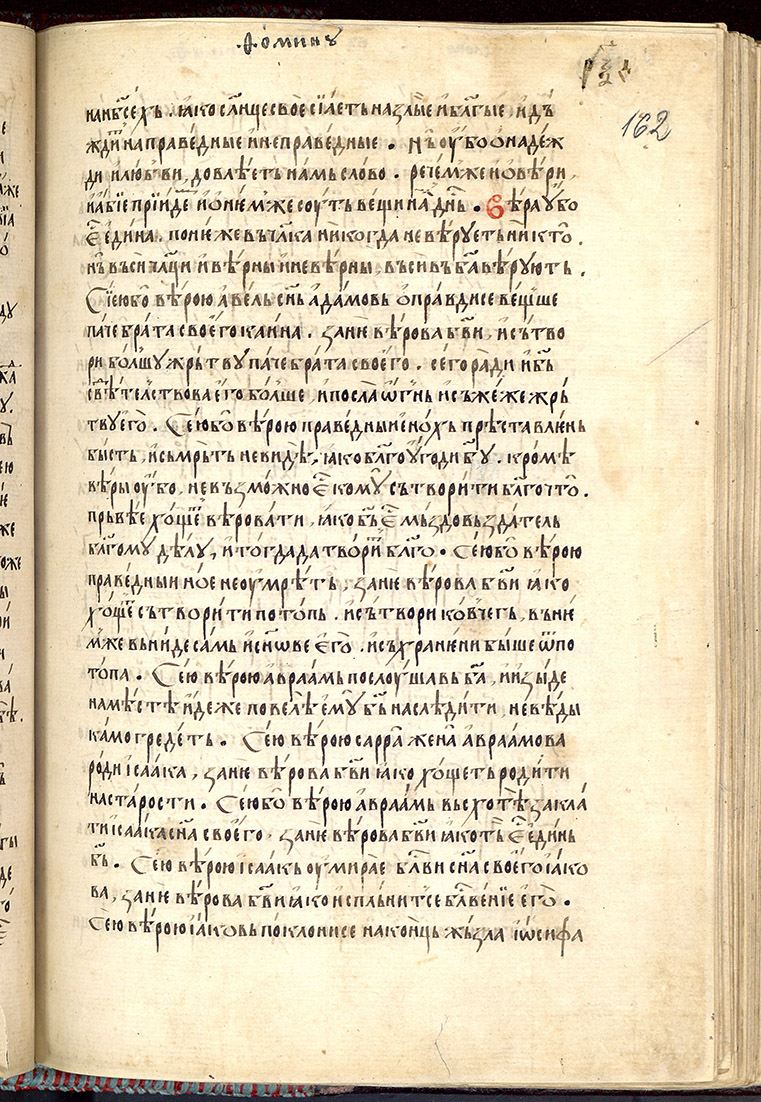 Ѳоминꙋ
162
на нб҃сехъ. ꙗко сл҃нце свое сїаетъ на злые и бл҃гые, и дъ
ждитъ на праведные и неправедные. Нъ оубо о надеж
ди и любви, довлѣетъ намь слово. речем же и о вѣри,
и абїе прїиде и о нем же соуть вещи на днь. Вѣра убо
ес̑ едина. понеже въ чл҃ка никогда не вѣруеть никто.
нъ вьси члци и вѣрны и невѣрны, вьси въ ба҃ вѣрують.
Сїею бо вѣрою авель сн҃ь адамовь оправдисе вещ'ше
паче брата своего каина. зане вѣрова бв҃и, и сътво
ри болшу жрътву паче брата своего. сего ради и бъ҃
свѣтелствова его болше, и посла ѡгнь и съжеже жрь
тву его. Сею бо вѣрою праведныи енохь прѣставлень
бысть, и съмръть не видѣ, ꙗко бл҃гоугоди бг҃у. кромѣ
вѣры оубо, невъзможно ес̑ кому сътворити бл҃го что.
прьвѣе хощет вѣровати, ꙗко бъ҃ ес̑ мьздовьздатель
бл҃гому дѣлу, и тогда да творит бл҃го. Сею бо вѣрою
праведныи ное не оумрѣть, зане вѣрова бв҃и ꙗко
хощет сътворити потопь. и сътвори ковчегь, въ не
м же вьниде самь и сн҃ове его. и съхранени быше ѿ по
топа. Сею вѣрою авраамь послоушавь ба҃, и изыде
на мѣстѣ идеже повелѣ ему бъ҃ наслѣдити, не вѣды
камо гредеть. Сею вѣрою сарра жена авраамова
роди ісаака, зане вѣрова бв҃и ꙗко хощеть родити
на старости. Сею бо вѣрою авраамь вьсхотѣ закла
ти ісаака сн҃а своего, зане вѣрова бв҃и ꙗко тъ ес̑ единь
бъ҃. Сею вѣрою ісаакь оумирае бл҃ви сн҃а своего іако
ва, зане вѣрова бв҃и ꙗко исплънитсе бл҃вение его.
Сею вѣрою іаковь поклонисе на конць жъзла іѡсифа